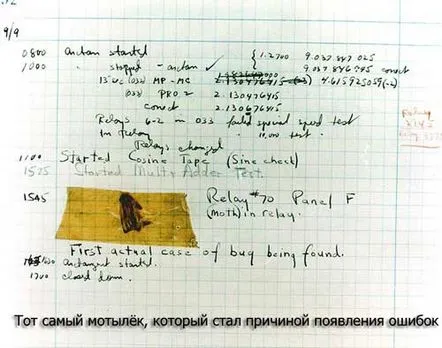 9/9
0800 Antan started
1000 " stopped - antan ✓ { 1.2700 9.037 847 025
9.037 846 995 correct
13"uc (032) MP - MC 2.130476415 (-3) 4.615925059(-2)
(033) PRO 2 2.130476415
correct 2.130676415
Relays 6-2 in 033 failed special speed test
in relay " 10,000 test.
Relays changed
1100 Started Cosine Tape (Sine check)
1525 Started Mult+Adder Test.
1545 Relay #70 Panel F
(Moth) in relay.
First actual case of bug being found.
antangent started.
1700 closed down.
Тот самый мотылёк, который стал причиной появления ошибок